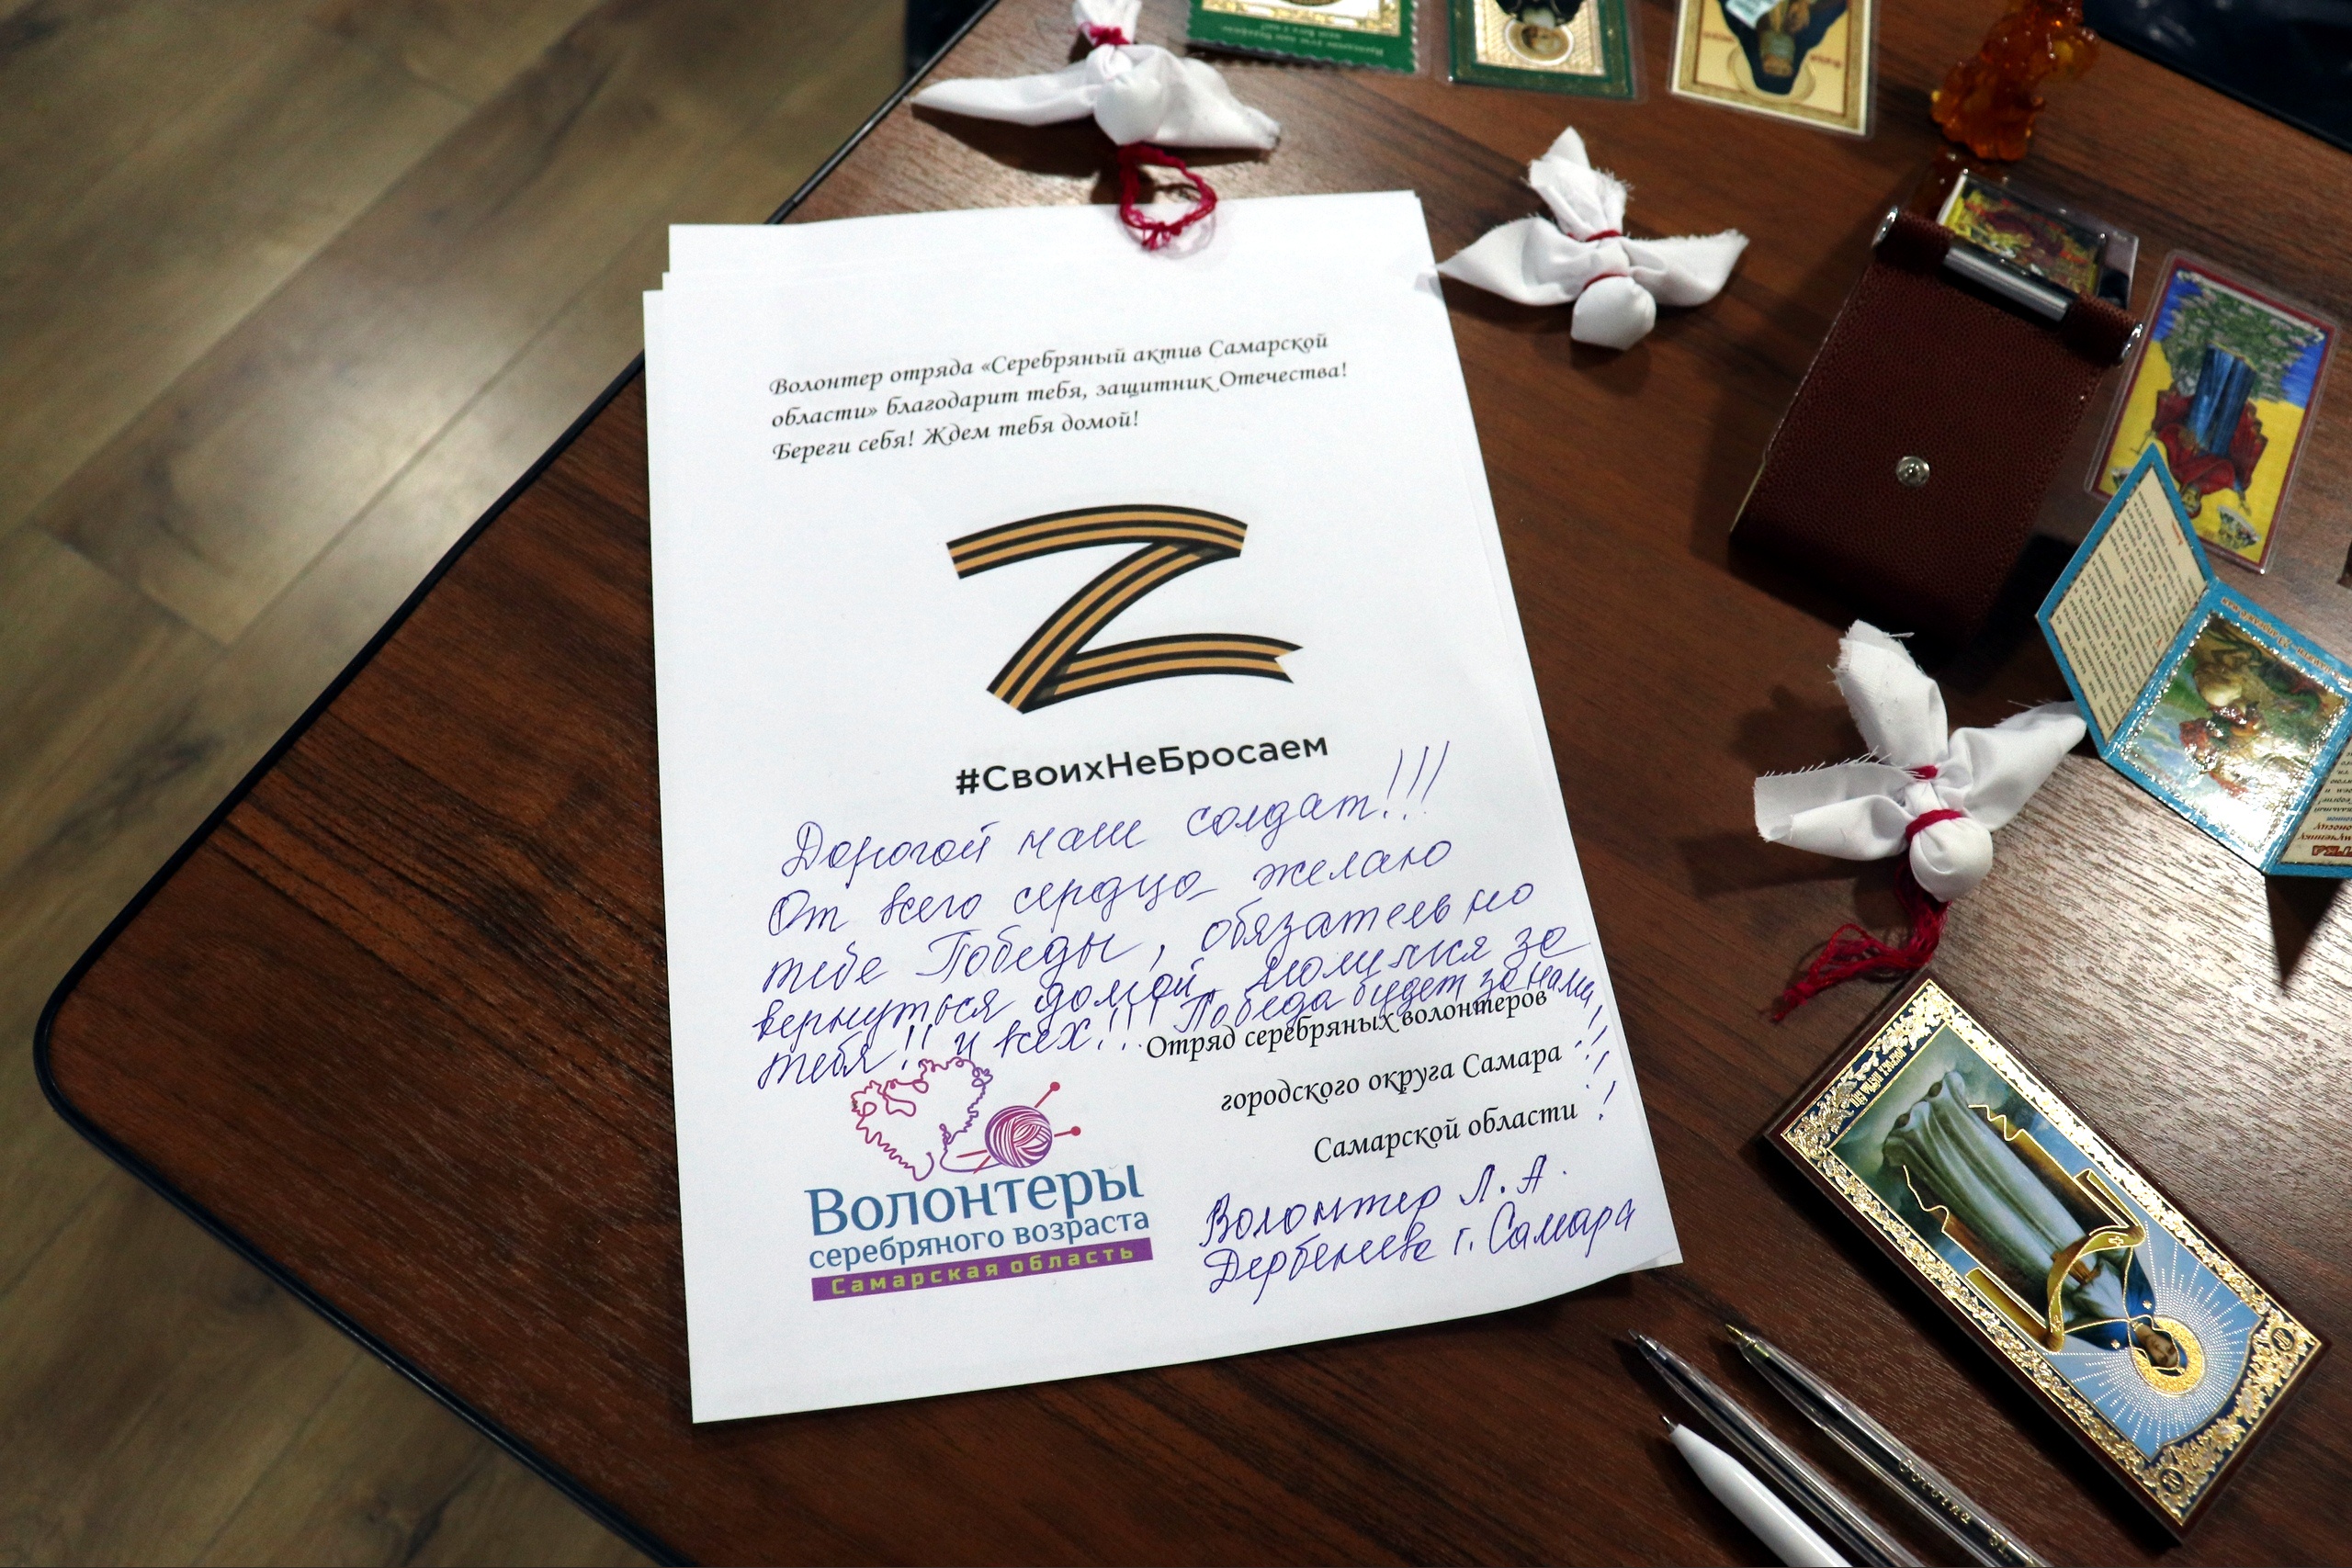 Волонтер отряда «Серебряный актив Самарской
области» благодарит тебя, защитник Отечества!
Береги себя! Ждем тебя домой!
#СвоихНеБросаем
Дорогой наш солдат!!!
От всего сердца желаю
тебе Победы, обязательно
вернуться домой. Молимся за
тебя!! и всех!!! Победа будет за нами,
!!!
Отряд серебряных волонтеров
городского округа Самара
Самарской области
Волонтеры
серебряного возраста
Самарская область
Волонтер Л. А.
Дербенева г. Самара